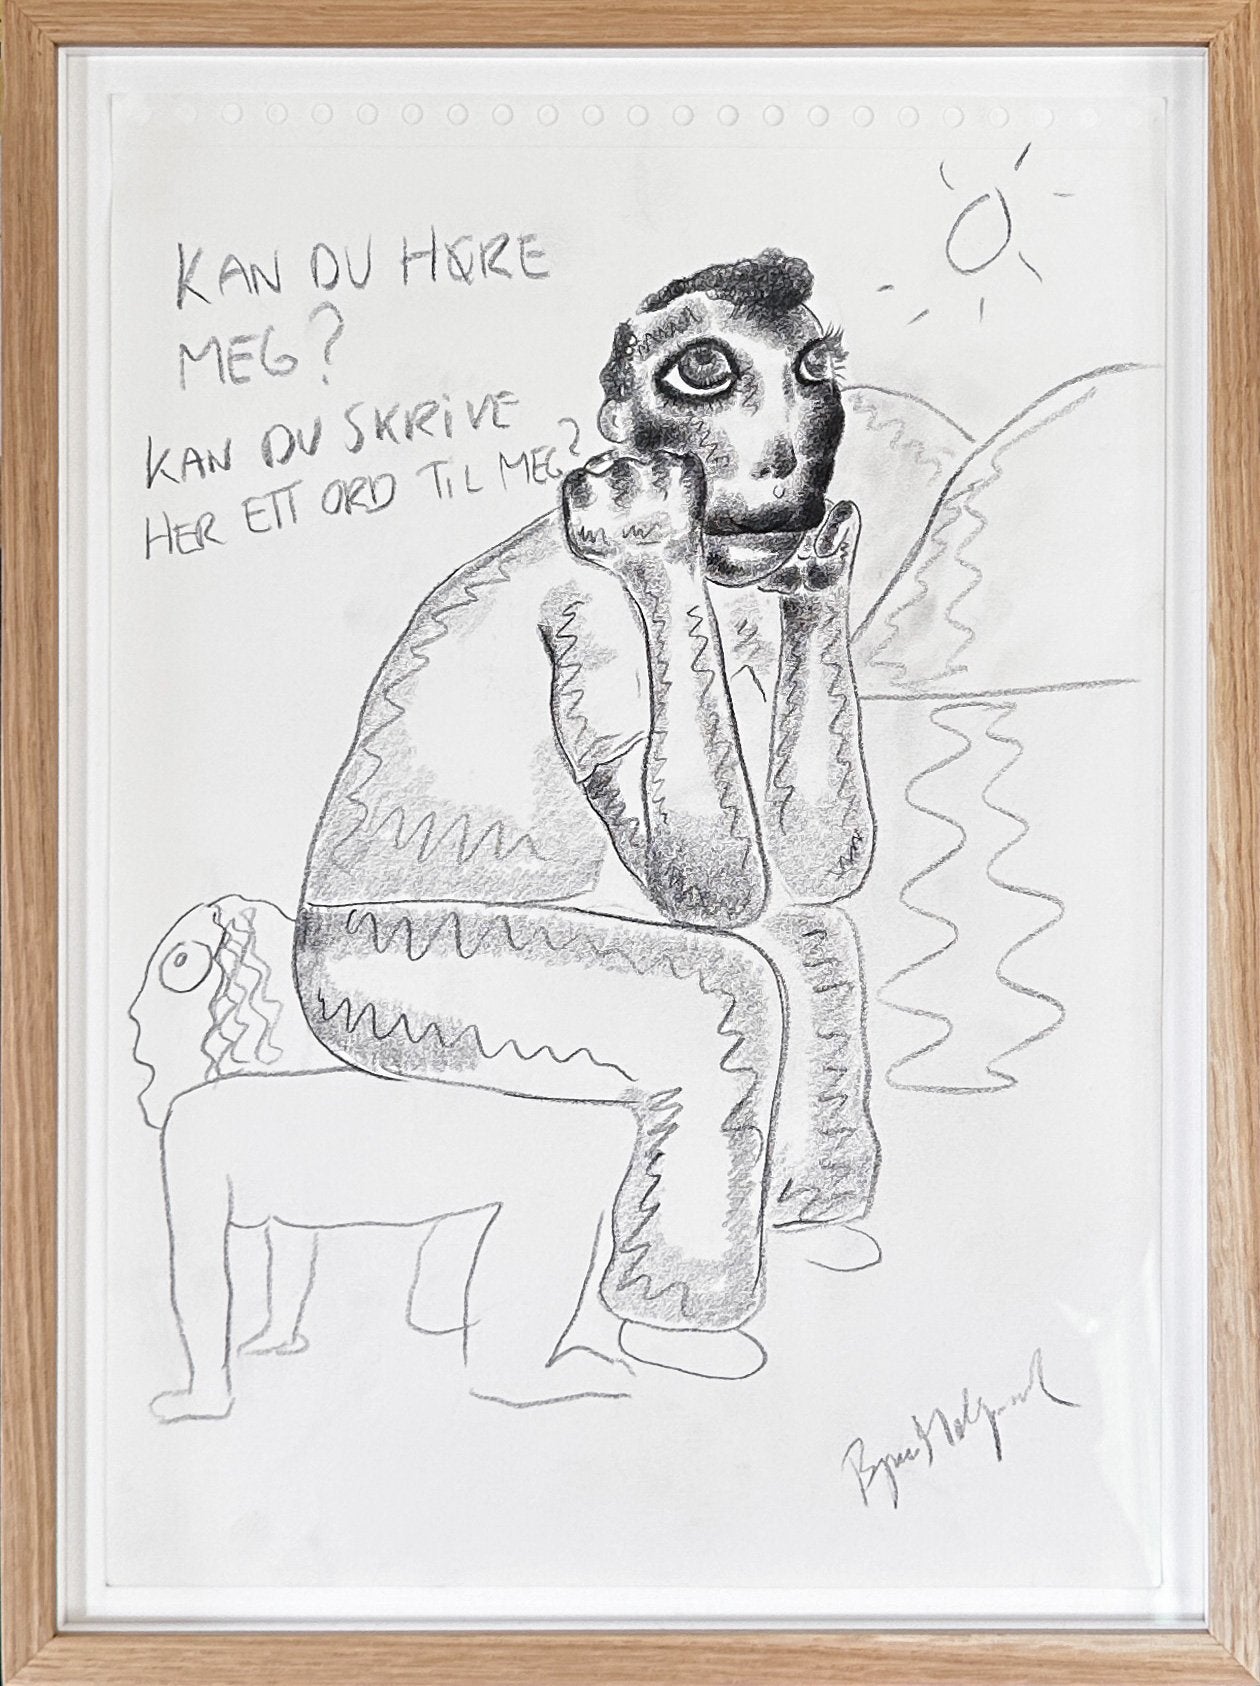 KAN DU HØRE
MEG?
KAN DU SKRIVE
HER ETT ORD TIL MEG?